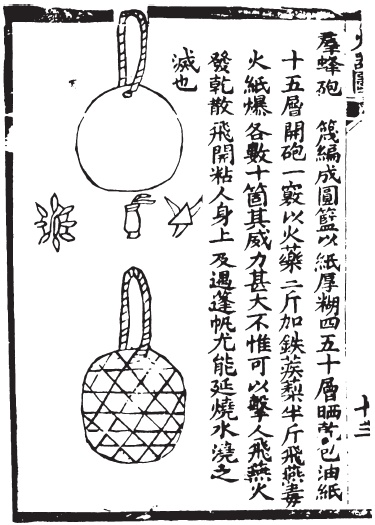 羣蜂砲　篾編成圓籃以紙厚糊四五十層晒乾包油紙
十五層開砲一竅以火藥二斤加鉄蒺蔾半斤飛燕毒
火紙爆各數十箇其威力甚大不惟可以擊人飛燕火
發乾散飛開粘人身上及遇蓬帆尤能延燒水澆之
滅也